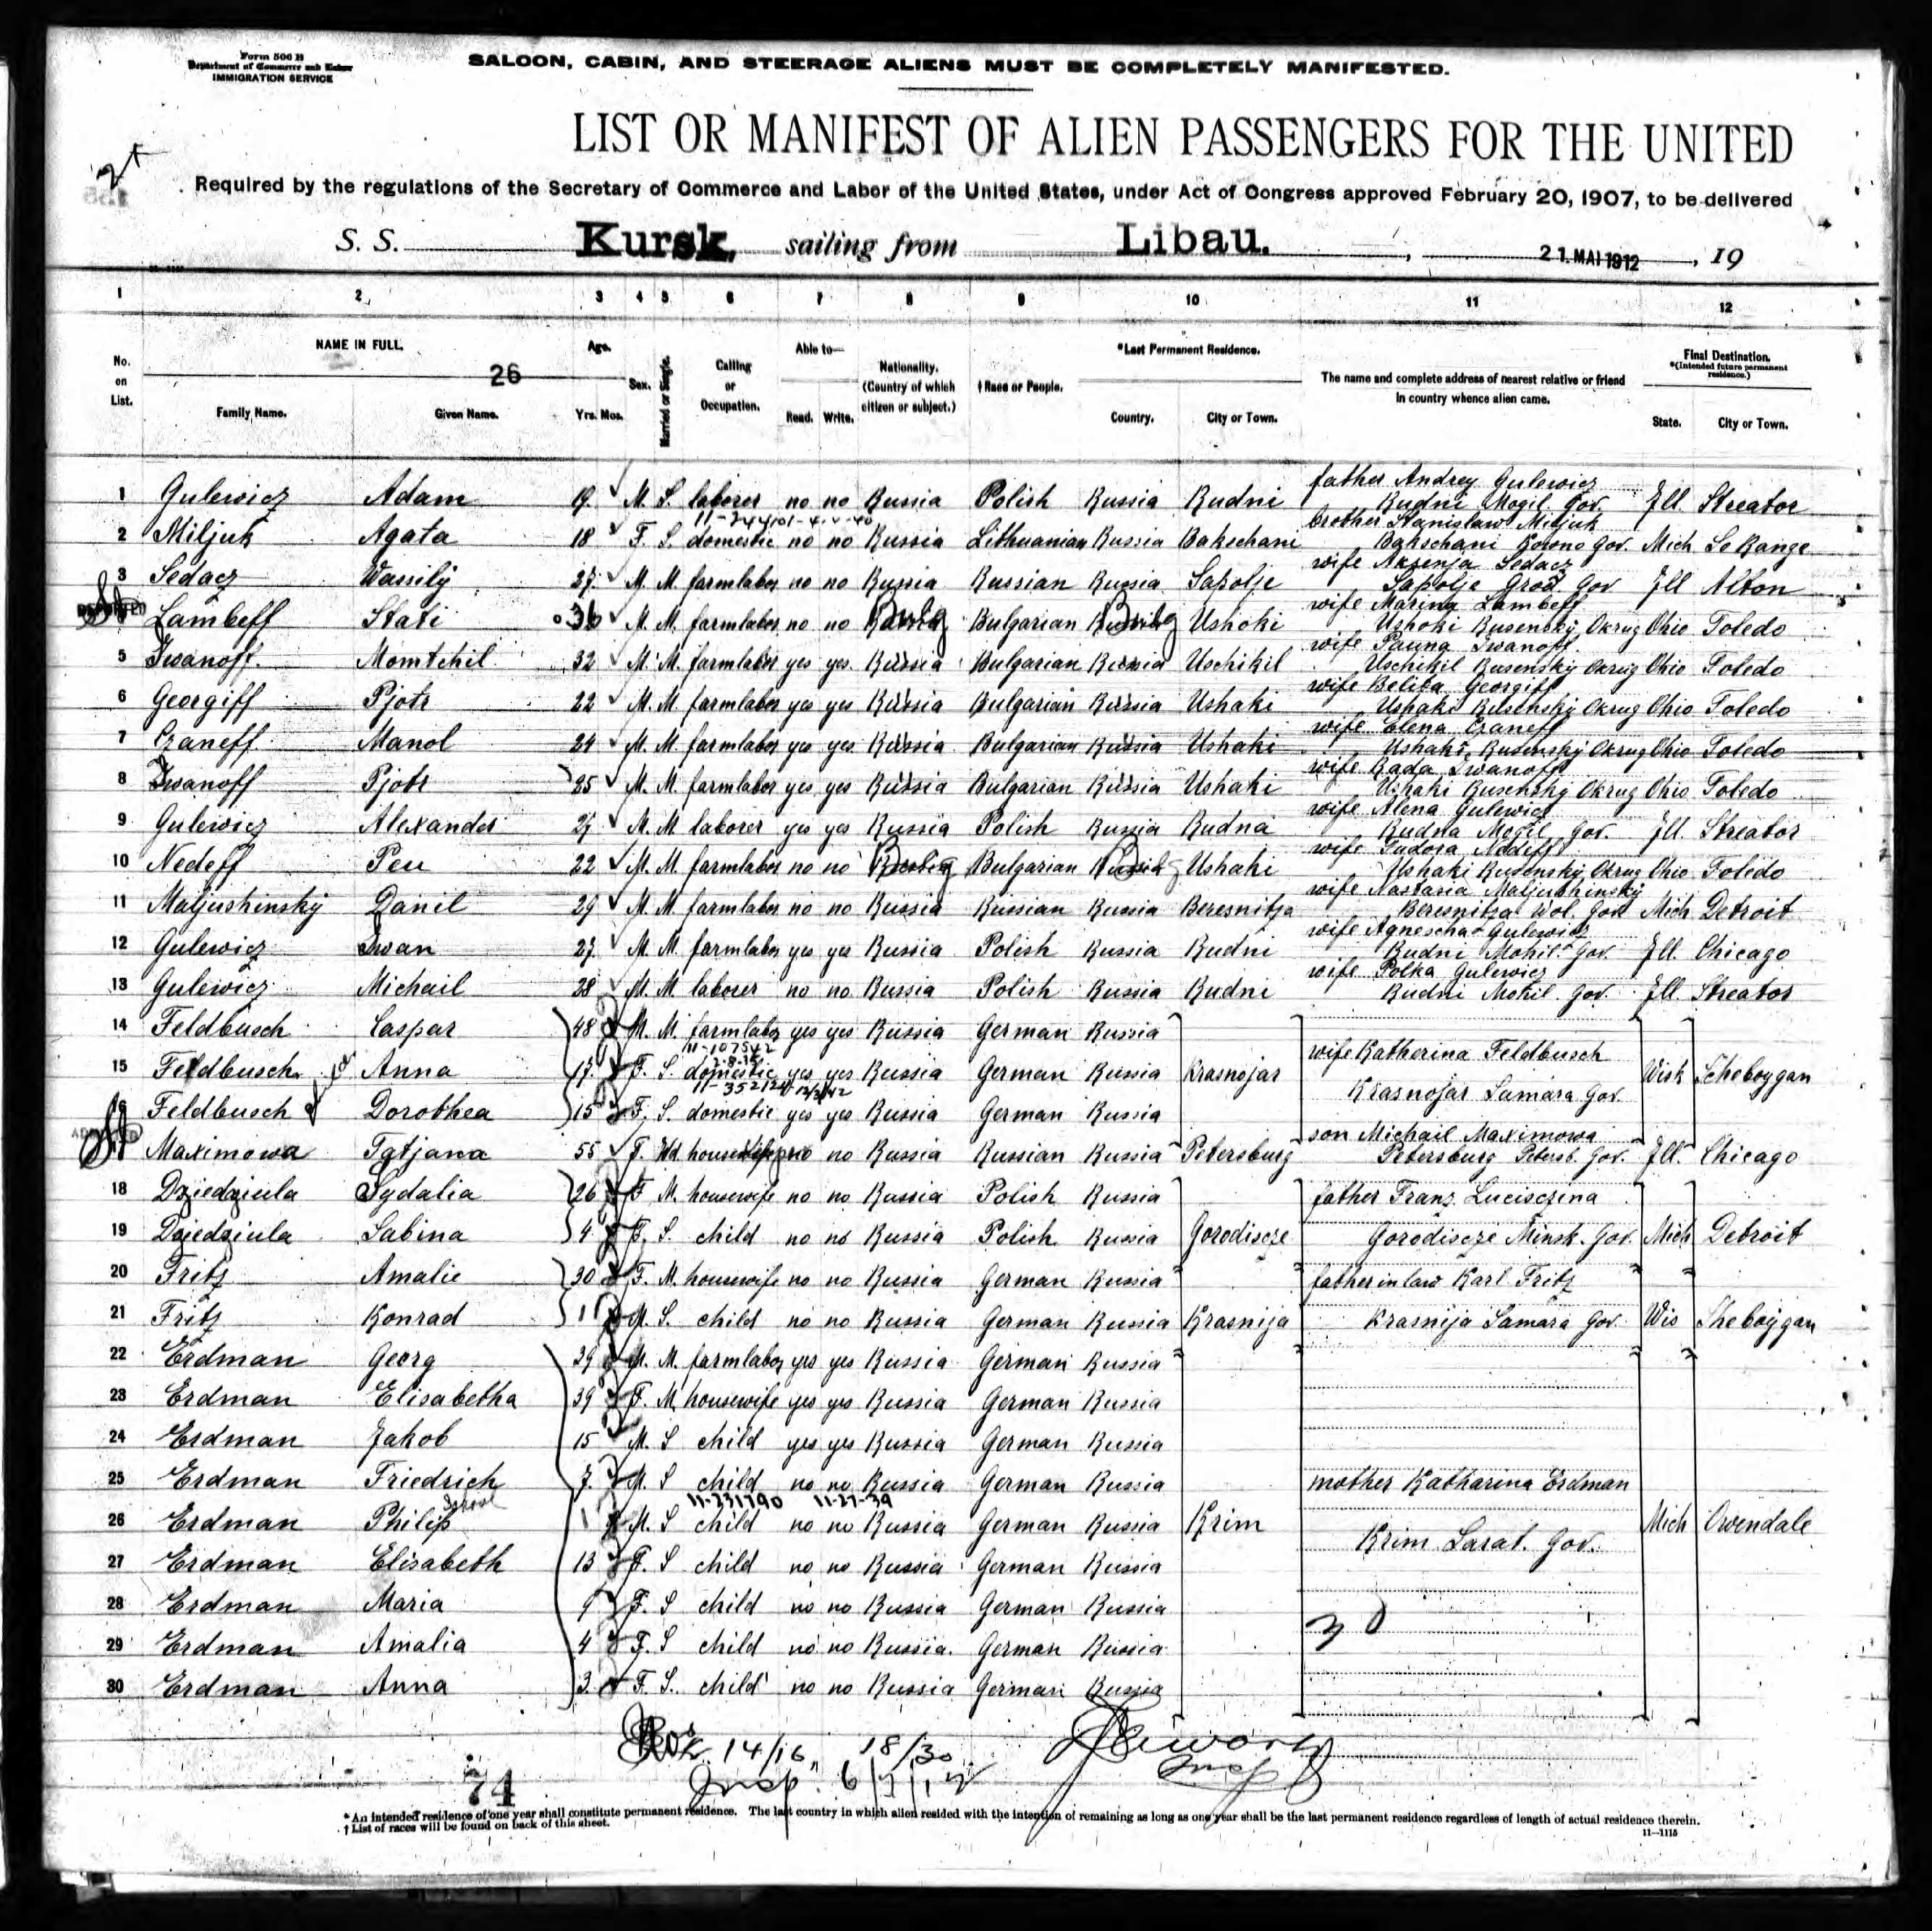 Form 500 B
Department of Commerce and Labor
IMMIGRATION SERVICE
SALOON, CABIN, AND STEERAGE ALIENS MUST BE COMPLETELY MANIFESTED.
LIST OR MANIFEST OF ALIEN PASSENGERS FOR THE UNITED
Required by the regulations of the Secretary of Commerce and Labor of the United States, under Act of Congress approved February 20, 1907, to be delivered
S. S. Kursk, sailing from Libau. , 21. MAI 1912 , 19
1 2 3 4 5 6 7 8 9 10 11 12
No. on List. NAME IN FULL. Family Name. Given Name. 26 Age. Yrs. Mos. Sex. Married or Single. Calling or Occupation. Able to— Read. Write. Nationality. (Country of which citizen or subject.) † Race or People. *Last Permanent Residence. Country. City or Town. The name and complete address of nearest relative or friend in country whence alien came. Final Destination. *(Intended future permanent residence.) State. City or Town.
father Andrey Gulewicz
1 Gulewicz Adam 19 M. S. laborer no no Russia Polish Russia Rudni Rudni Mogil. Gov. Ill. Streator
brother Stanislaw Miljuk
2 Miljuk Agata 18 F. S. domestic no no Russia Lithuanian Russia Bakschani Bakschani Kowno Gov. Mich Le Range
wife Aksenja Sedacz
3 Sedacz Wassily 27 M. M. farmlabor no no Russia Russian Russia Sapolje Sapolje Grod. Gov Ill Alton
wife Marina Lambeff
DEPORTED Lambeff Stati 36 M. M. farmlabor no no Bulg Bulgarian Bulg Ushoki Ushoki Rusensky Okrug Ohio Toledo
wife Pauna Iwanoff
5 Iwanoff Momtchil 32 M. M. farmlabor yes yes Russia Bulgarian Russia Uschikil Uschikil Rusensky Okrug Ohio Toledo
wife Belika Georgiff
6 Georgiff Pjotr 22 M. M. farmlabor yes yes Russia Bulgarian Russia Ushaki Ushaki Rusensky Okrug Ohio Toledo
wife Elena Czaneff
7 Czaneff Manol 24 M. M. farmlabor yes yes Russia Bulgarian Russia Ushaki Ushaki, Rusensky Okrug Ohio Toledo
wife Rada Iwanoff
8 Iwanoff Pjotr 25 M. M. farmlabor yes yes Russia Bulgarian Russia Ushaki Ushaki Rusensky Okrug Ohio Toledo
wife Alena Gulewicz
9 Gulewicz Alexander 27 M. M laborer yes yes Russia Polish Russia Rudna Rudna Mogil. Gov. Ill. Streator
wife Tudora Nedeff
10 Nedeff Peu 22 M. M. farmlabor no no Bulg Bulgarian Ushaki Ushaki Rusensky Okrug Ohio Toledo
wife Nastasia Maljushinsky
11 Maljushinsky Danil 29 M. M. farmlabor no no Russia Russian Russia Beresnitza Beresnitza Wol. Gov Mich Detroit
wife Agnescha Gulewicz
12 Gulewicz Iwan 27 M. M. farmlabor yes yes Russia Polish Russia Rudni Rudni Mohil. Gov. Ill. Chicago
wife Polka Gulewicz
13 Gulewicz Michail 28 M. M. laborer no no Russia Polish Russia Rudni Rudni Mohil. Gov. Ill. Streator
14 Feldbusch Caspar 48 M. M. farmlabor yes yes Russia German Russia
wife Katherina Feldbusch
15 Feldbusch Anna 17 F. S. domestic yes yes Russia German Russia Krasnojar Wisk Scheboygan
Krasnojar Samara Gov.
16 Feldbusch Dorothea 15 F. S. domestic yes yes Russia German Russia
son Michail Maximowa
Maximowa Tatjana 55 F. Wd. housewife no no Russia Russian Russia Petersburg Petersburg Petersb. Gov. Ill. Chicago
18 Dziedziula Sydalia 26 F M. housewife no no Russia Polish Russia father Franz Lucisczina
19 Dziedziula Sabina 4 F. S. child no no Russia Polish Russia Gorodiscze Gorodiscze Minsk. Gov. Mich Detroit
20 Fritz Amalie 30 F. M. housewife no no Russia German Russia father in law Karl Fritz
21 Fritz Konrad 11 M. S. child no no Russia German Russia Krasnija Krasnija Samara Gov. Wis Sheboygan
22 Erdman Georg 39 M. M. farmlabor yes yes Russia German Russia
23 Erdman Elisabetha 39 F. M. housewife yes yes Russia German Russia
24 Erdman Jakob 15 M. S child yes yes Russia German Russia
25 Erdman Friedrich 7 M. S child no no Russia German Russia mother Katharina Erdman
11-231790 11-27-39
26 Erdman Philip 1 M. S child no no Russia German Russia Krim Krim Sarat. Gov. Mich Owendale
27 Erdman Elisabeth 13 F. S child no no Russia German Russia
28 Erdman Maria 9 F. S child no no Russia German Russia
29 Erdman Amalia 4 F. S child no no Russia. German Russia
30 Erdman Anna 3. F. S. child no no Russia German Russia
14/16 18/30
Insp.
74
* An intended residence of one year shall constitute permanent residence. The last country in which alien resided with the intention of remaining as long as one year shall be the last permanent residence regardless of length of actual residence therein.
† List of races will be found on back of this sheet.
11—1115